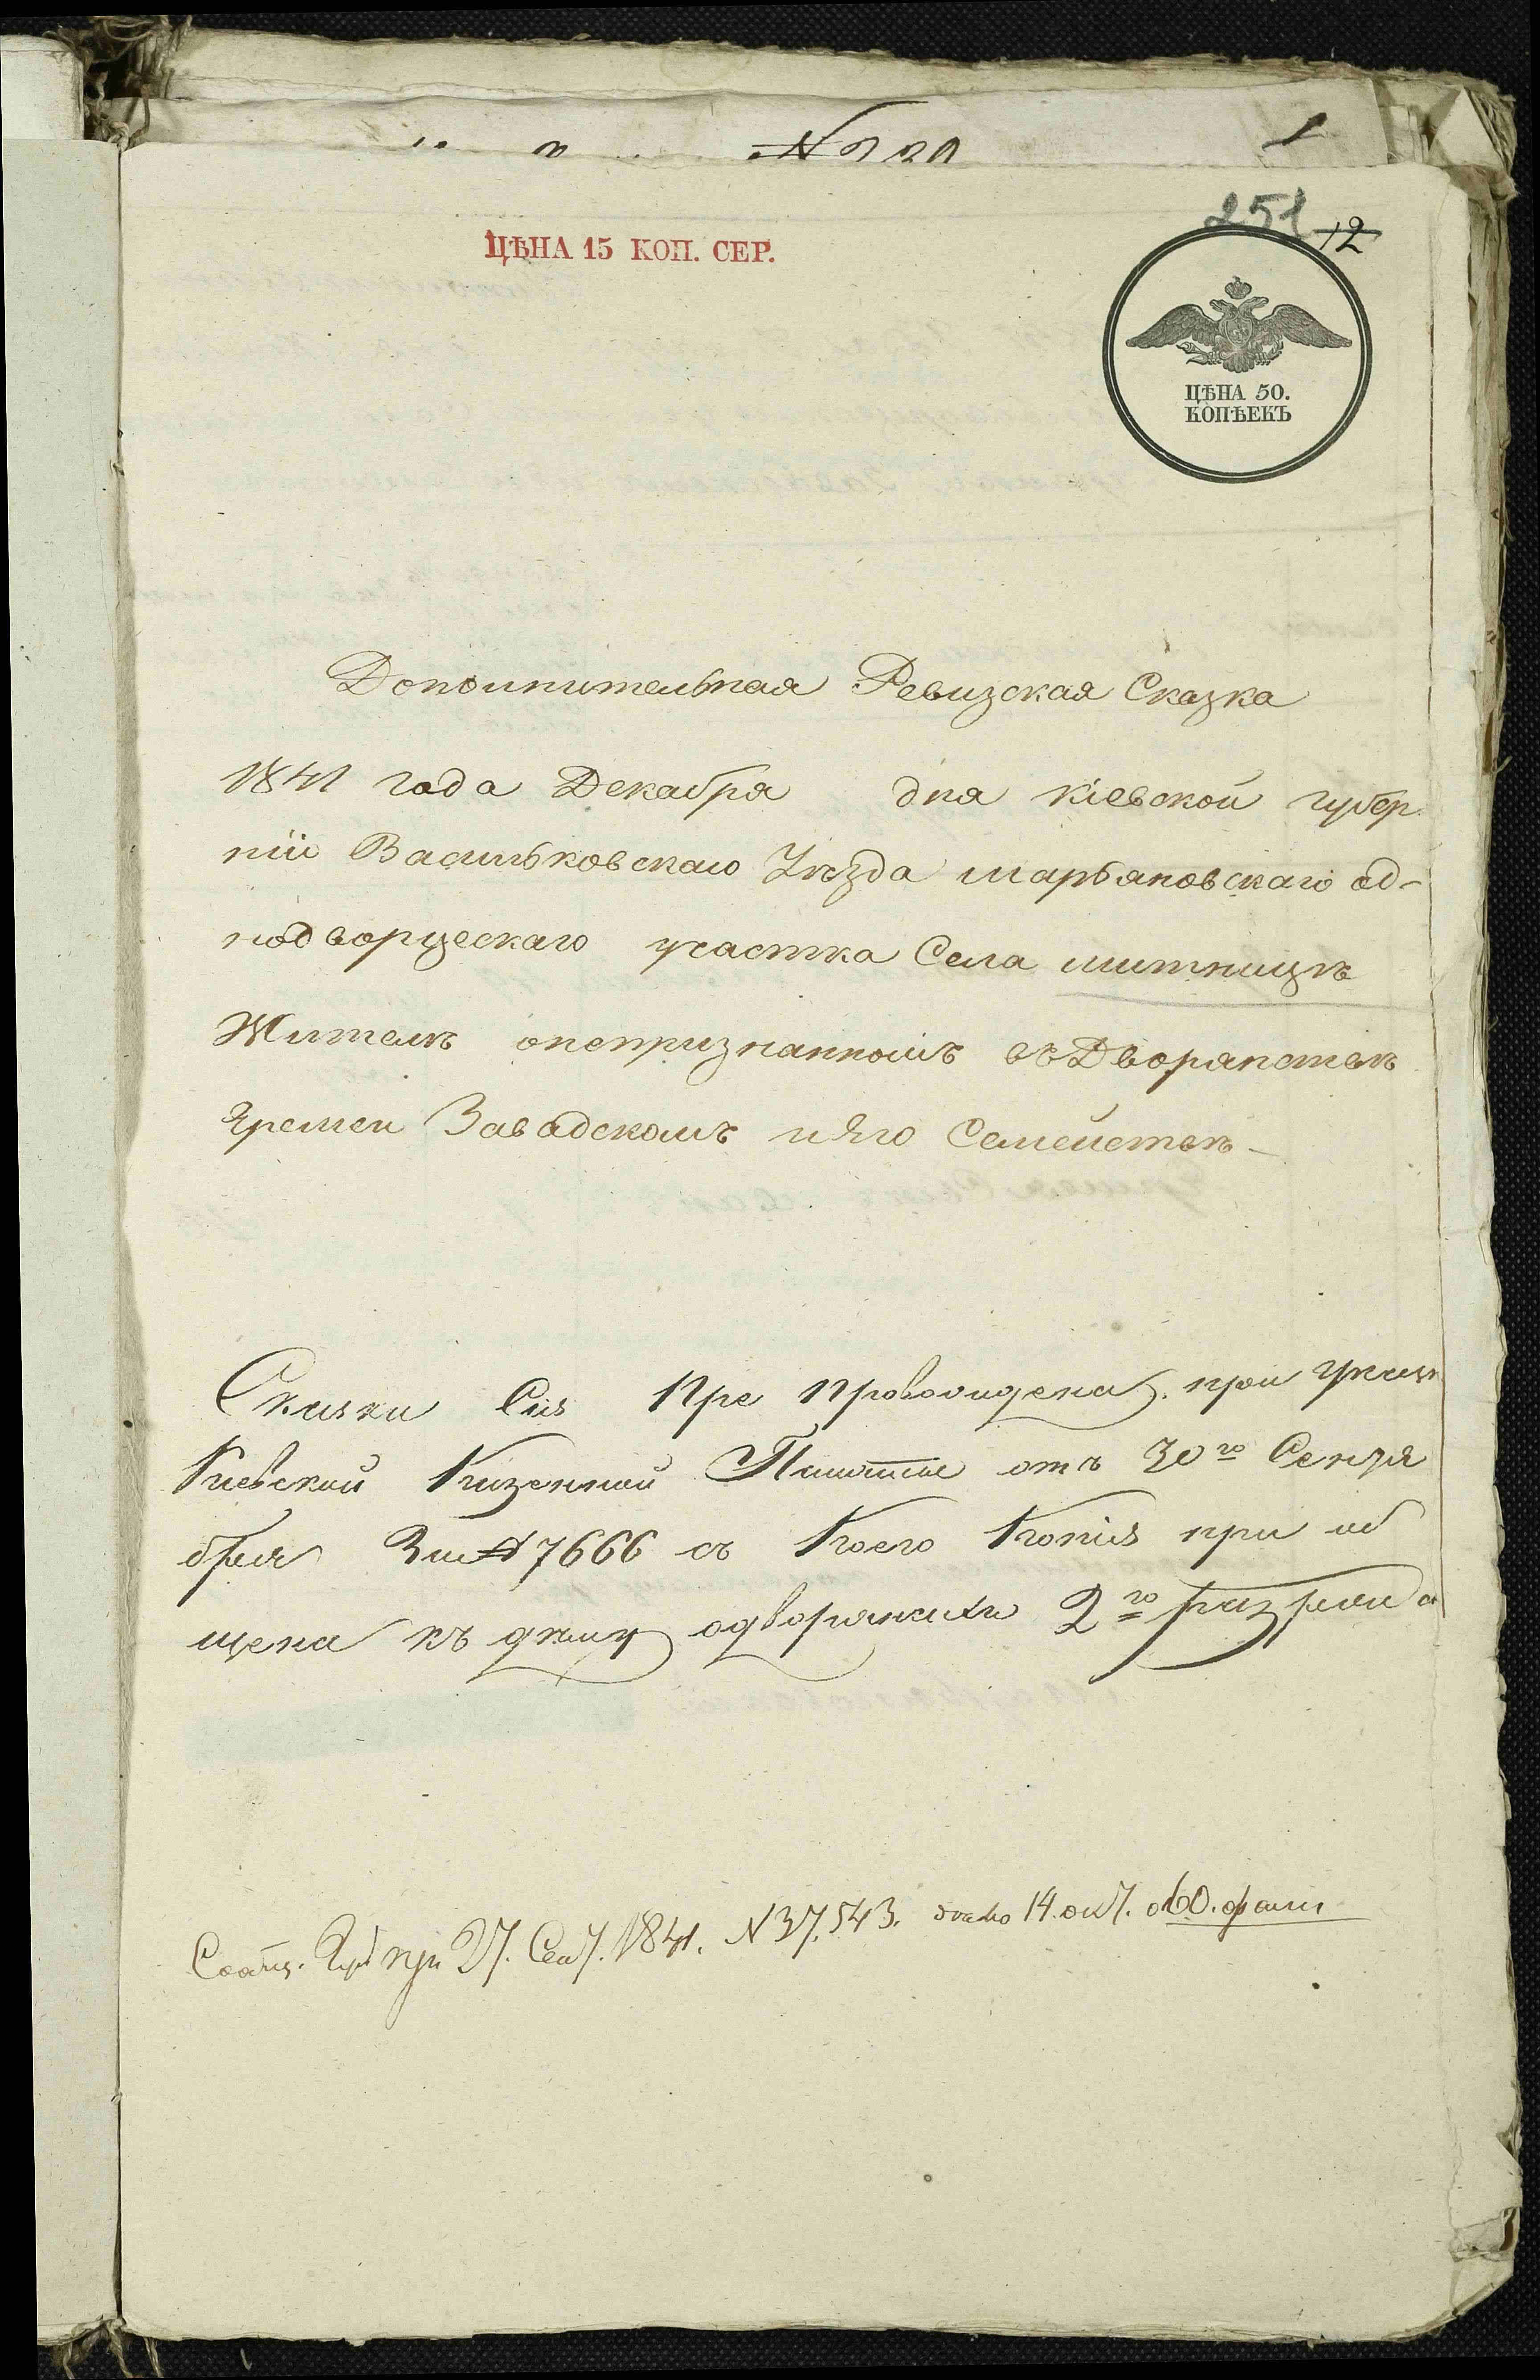 251 12
ЦѢНА 15 КОП. СЕР.
ЦѢНА 50.
КОПѢЕКЪ
Дополнительная Ревизская Сказка
1841 года Декабря дня Кіевской губер
ніи Васильковскаго Уѣзда марьяновскаго од-
нодворческаго участка Села митницѣ
Жителѣ онепризнанномъ въ Дворянствѣ
Яремеи Завадскомъ и Его Семействѣ
Сказки Сія Пре провождена при Указѣ
Киевской Казенной Палаты отъ 30го Сентя
бря За № 7666 съ Коего Копія при об
щена къ дѣлу одворянахъ 2го разряда
при 27. Сен. 1841. N 37.543. 14. окт. о 60. фами